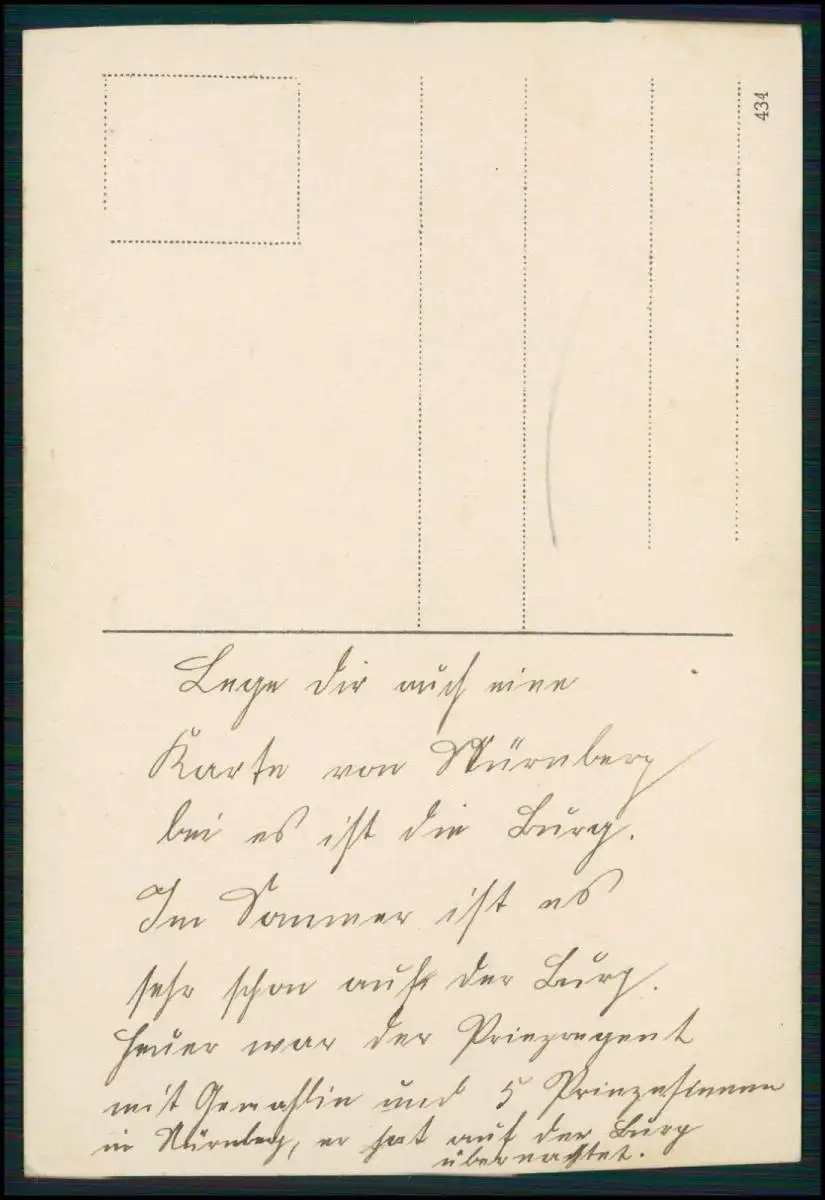 434
Lege dir auch eine
Karte von Nürnberg
bei es ist die Burg.
Im Sommer ist es
sehr schon auf der Burg.
Heuer war der Prinzregent
mit Gemahlin und 5 Prinzessinnen
in Nürnberg, er hat auf der Burg
übernachtet.